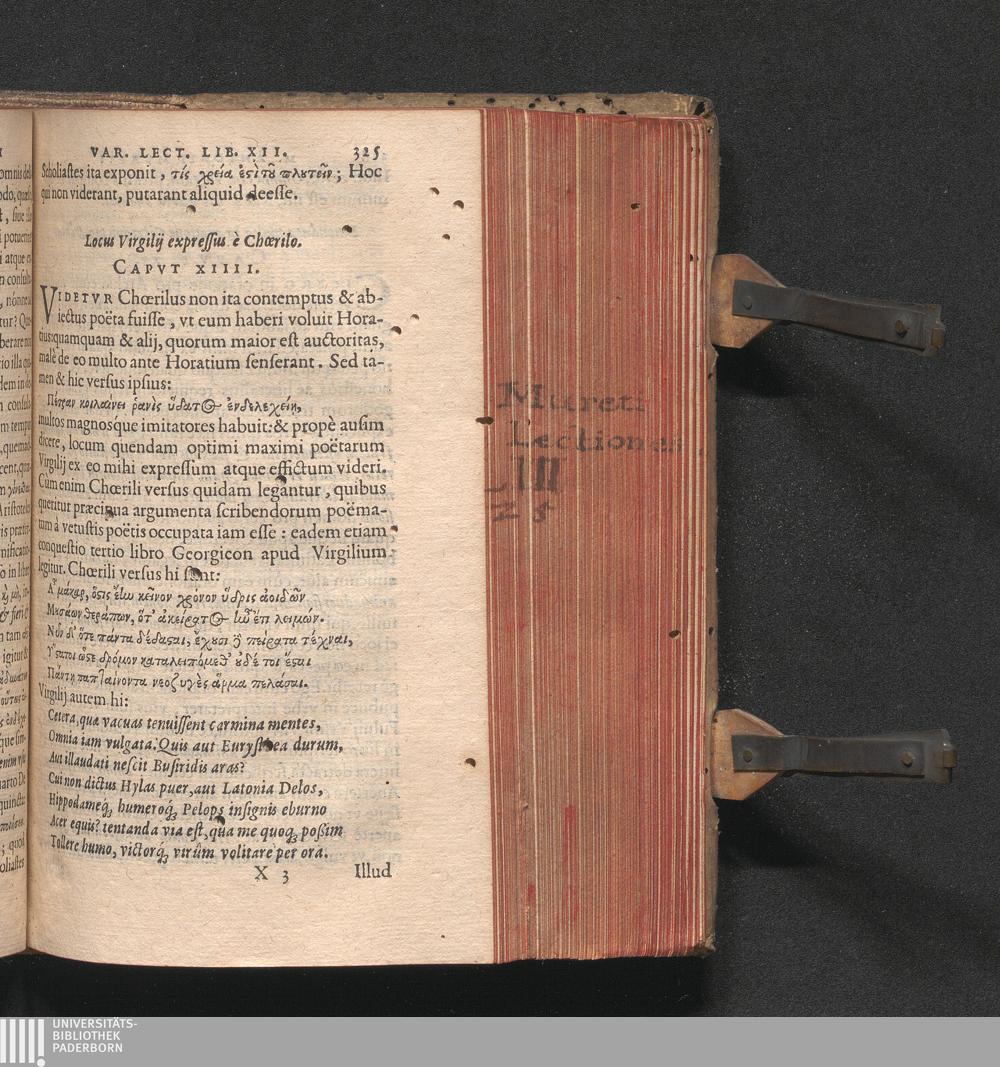 VAR. LECT. LIB. XII. 325
Scholiastes ita exponit, τίς χρεία ἐςὶ τȣ͂ πλȣτεῖν; Hoc
qui non viderant, putarant aliquid deesse.
Locus Virgilij expressus è Chœrilo.
CAPVT XIIII.
VIDETVR Chœrilus non ita contemptus & ab-
iectus poëta fuisse, vt eum haberi voluit Hora-
tius: quamquam & alij, quorum maior est auctoritas,
malè de eo multo ante Horatium senserant. Sed ta-
men & hic versus ipsius:
Πέτραν κοιλαίνει ῥανὶς ὕδατος ἐνδελεχείῃ,
multos magnosque imitatores habuit: & propè ausim
dicere, locum quendam optimi maximi poëtarum
Virgilij ex eo mihi expressum atque effictum videri.
Cum enim Chœrili versus quidam legantur, quibus
queritur præcipua argumenta scribendorum poëma-
tum à vetustis poëtis occupata iam esse: eadem etiam
conquestio tertio libro Georgicon apud Virgilium
legitur. Chœrili versus hi sunt:
Ἆ μάκαρ, ὅςις ἔlω κεῖνον χρόνον ὕδρις ἀοιδῶν
Μȣσάων θεράπων, ὅτ' ἀκείρατος lῶ ἔτι λειμών.
Νῦν δ' ὅτε πάντα δέδαςαι, ἔχȣσι ȣ̓͂ πείρατα τέχναι,
Ὕςατοι ὥςε δρόμον καταλειπόμεθ' ȣ̓δέ τοι ἔςαι
Πάντη παπταίνοντα νεοζυγὲς ἅρμα πελάσαι.
Virgilij autem hi:
Cetera, quæ vacuas tenuissent carmina mentes,
Omnia iam vulgata. Quis aut Eurysthea durum,
Aut illaudati nescit Busiridis aras?
Cui non dictus Hylas puer, aut Latonia Delos,
Hippodameq́; humeroq́; Pelops insignis eburno
Acer equis? tentanda via est, qua me quoq; poßim
Tollere humo, victorq́; virûm volitare per ora.
X 3 Illud
Mureti
Lectiones
LII
25
UNIVERSITÄTS-
BIBLIOTHEK
PADERBORN